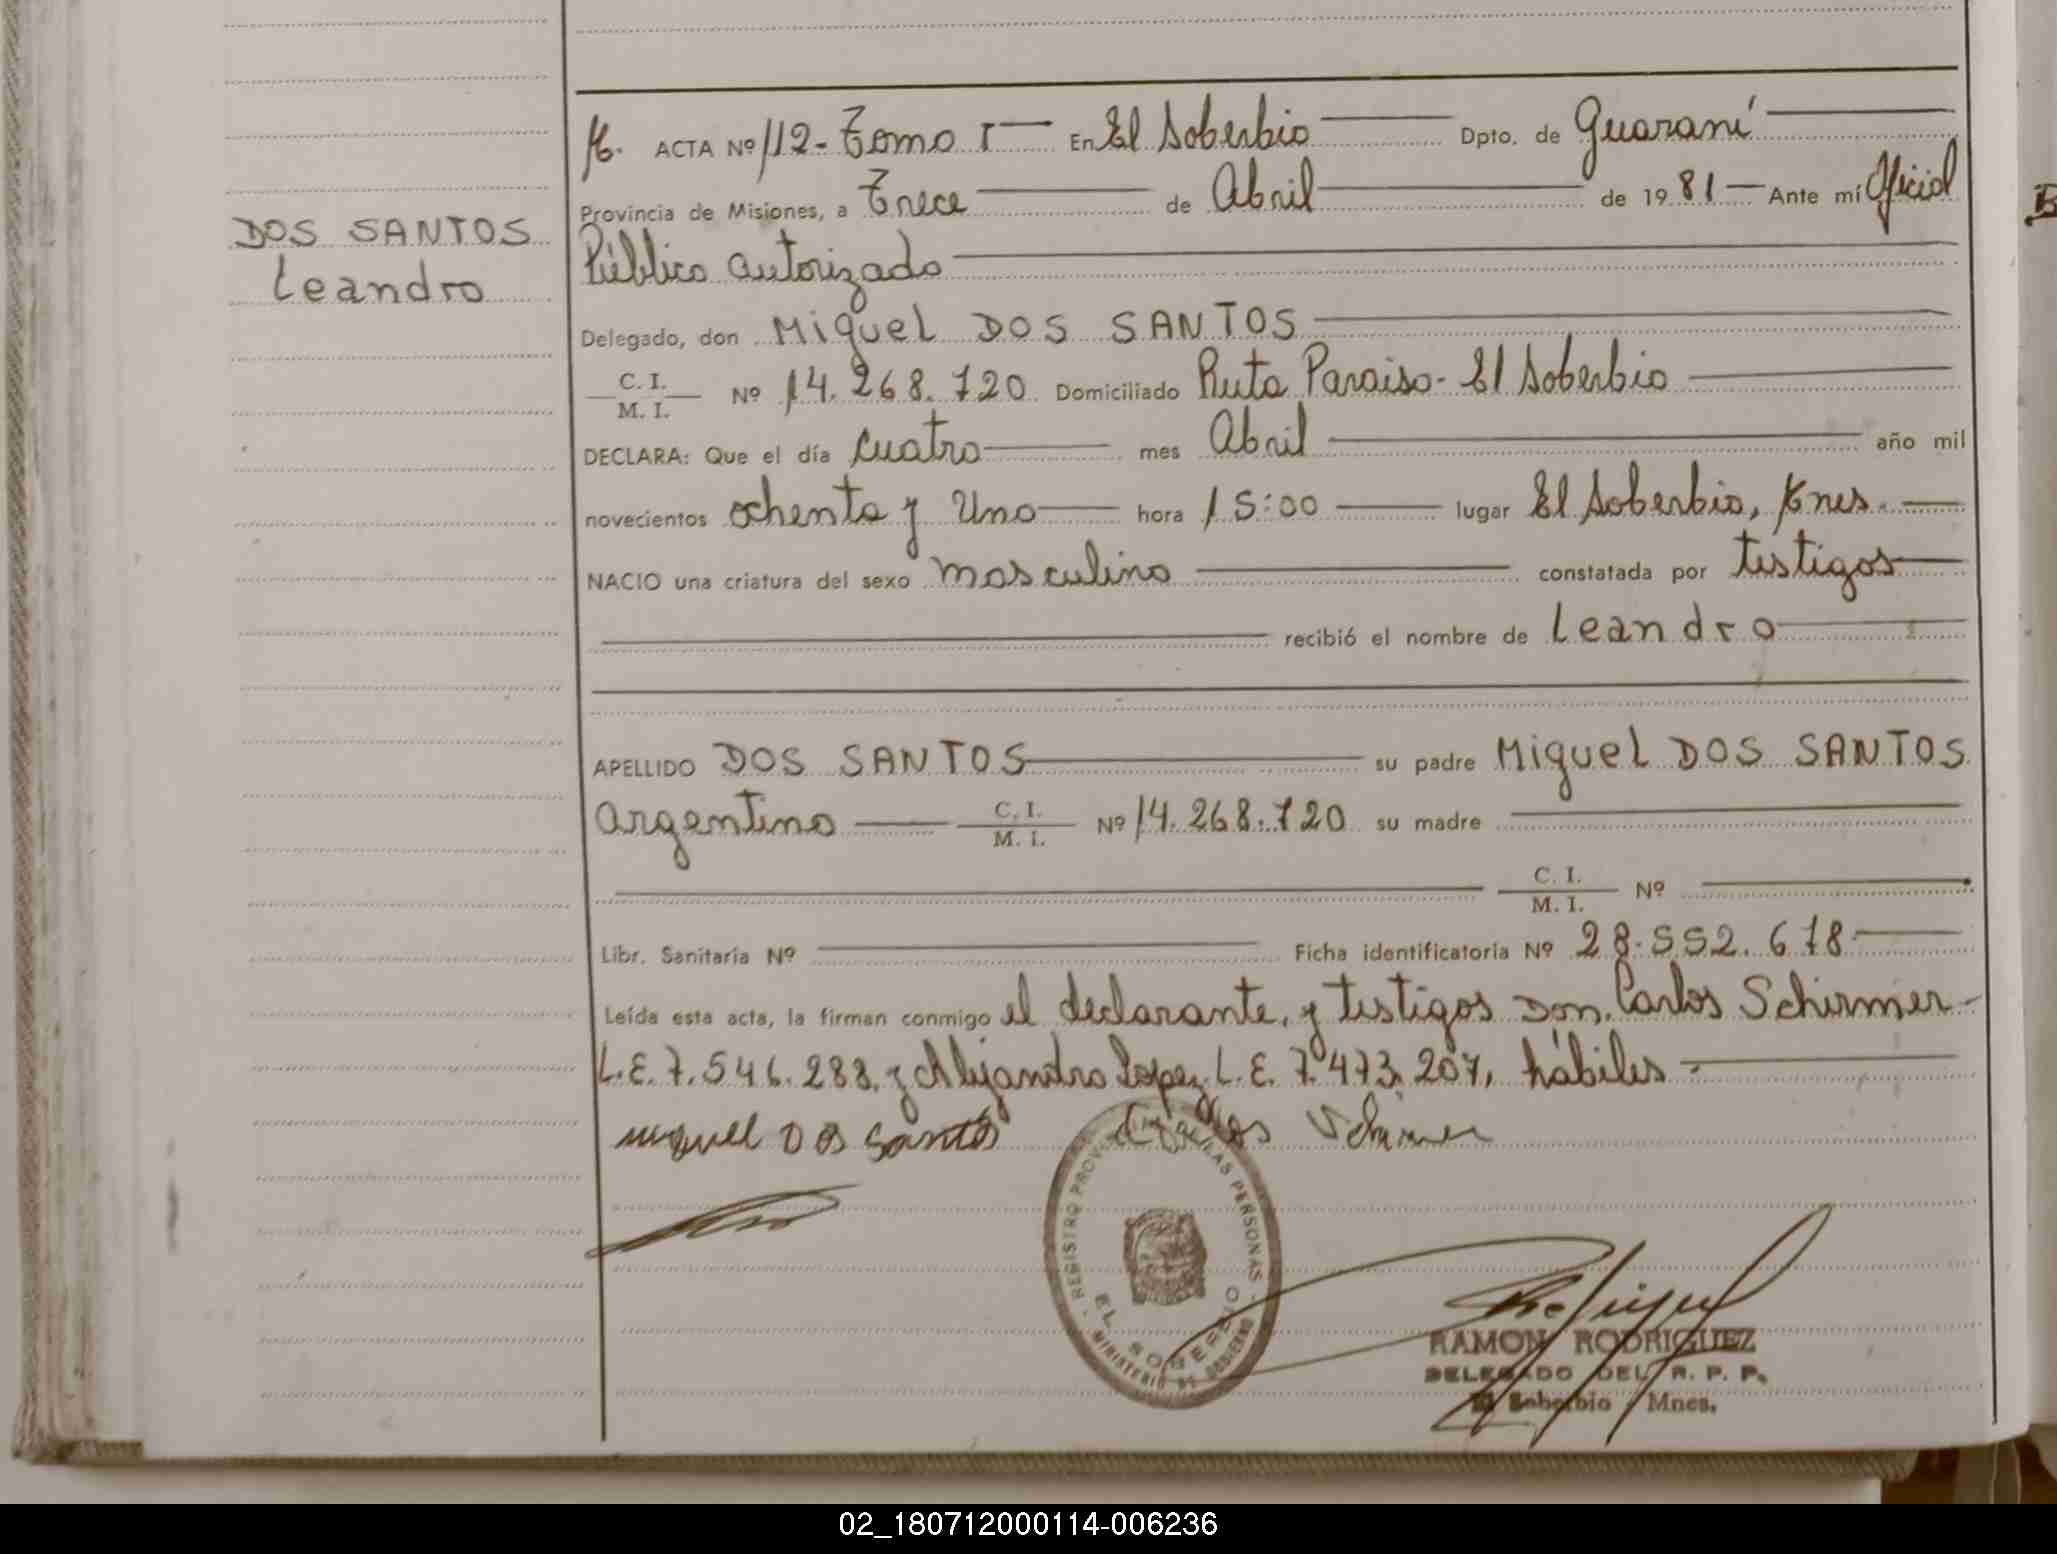 M. ACTA Nº 112 - Tomo I En El Soberbio Dpto. de Guaraní
Provincia de Misiones, a Trece de Abril de 1981 Ante mí Oficial
Público autorizado
DOS SANTOS
Leandro
Delegado, don Miguel DOS SANTOS
C. I.
M. I. Nº 14.268.720 Domiciliado Ruta Paraiso - El Soberbio
DECLARA: Que el día cuatro mes Abril año mil
novecientos ochenta y Uno hora 15:00 lugar El Soberbio, Mnes.
NACIO una criatura del sexo masculino constatada por testigos
recibió el nombre de Leandro
APELLIDO DOS SANTOS su padre Miguel DOS SANTOS
argentino C. I.
M. I. Nº 14.268.720 su madre
C. I.
M. I. Nº
Libr. Sanitaria Nº Ficha identificatoria Nº 28.552.678
Leída esta acta, la firman conmigo el declarante, y testigos Don. Carlos Schirmer -
L.E. 7.546.288, y Alejandro Lopez L.E. 7.473.207, hábiles -
miguel DOS Santos
REGISTRO PERSONAS
EL SOBERBIO
MINISTERIO DE GOBIERNO
RAMON RODRIGUEZ
DELEGADO DEL R. P. P.
El Soberbio - Mnes.
02_180712000114-006236